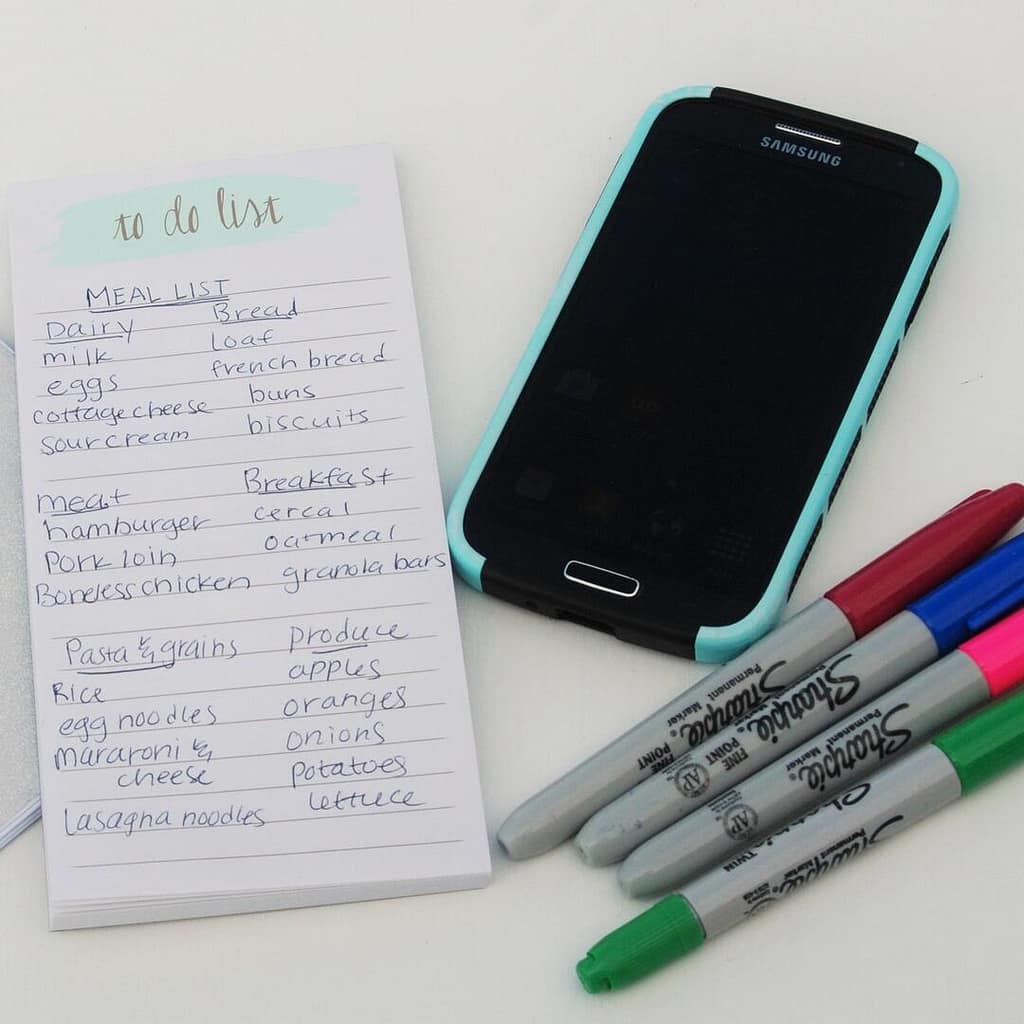 to do list
MEAL LIST
Dairy
milk
eggs
cottage cheese
sour cream
Bread
loaf
french bread
buns
biscuits
meat
hamburger
Pork loin
Boneless chicken
Breakfast
cereal
oatmeal
granola bars
Pasta & grains
Rice
egg noodles
macaroni &
cheese
Lasagna noodles
produce
apples
oranges
onions
potatoes
lettuce
SAMSUNG
Sharpie
Permanent Marker
FINE POINT
Sharpie
Permanent Marker
FINE POINT
AP
Sharpie
Permanent Marker
AP
Sharpie
Permanent Marker
TWIN